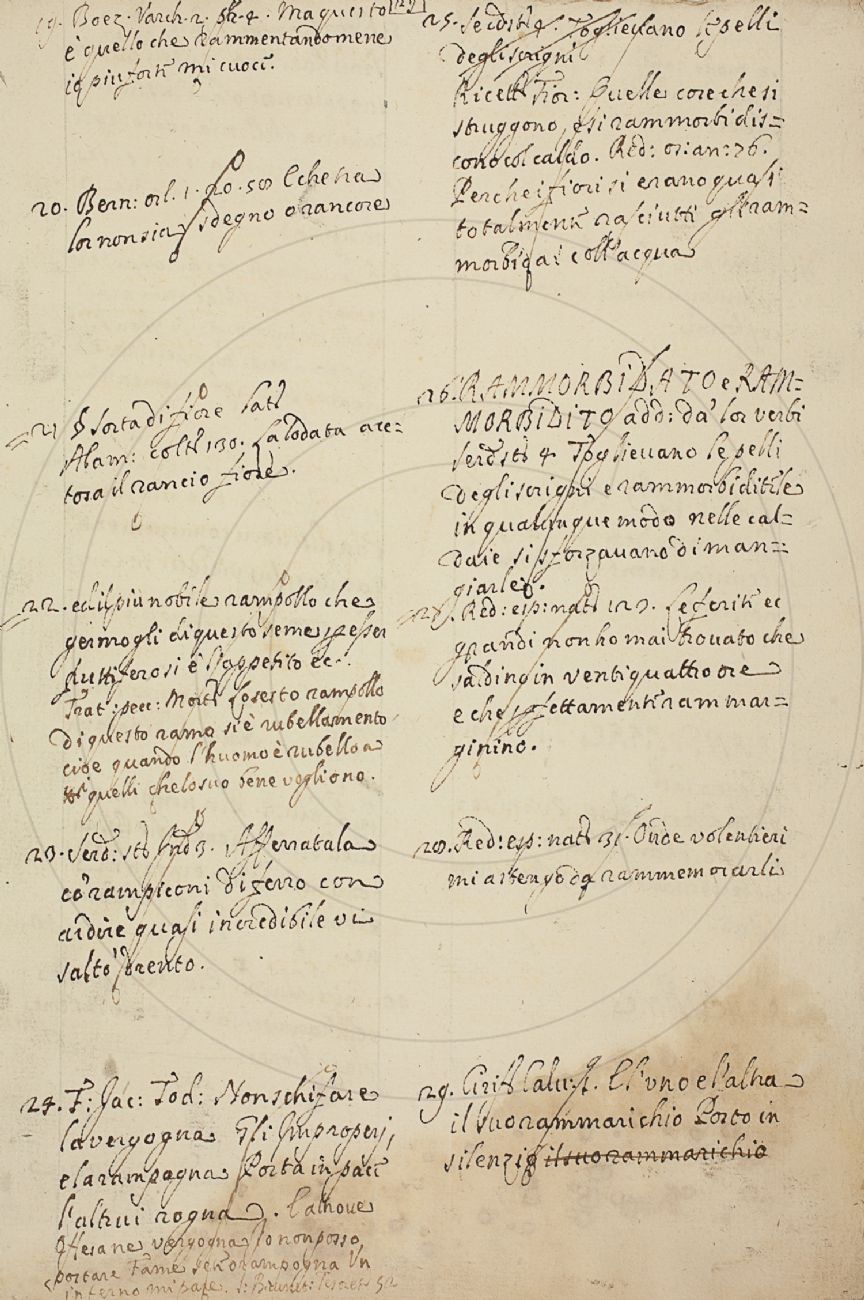 19. Boez. Varch. 2. 4. Ma questo
è quello che rammentandomene
io piu forte mi cuoce.
20. Bern: orl. 1. 20. 58 E che tra
lor non sia sdegno o rancore
21 sorta di fiore
Alam: colt: 130. La lodata ace=
tosa il rancio fiore.
22. ed il piu nobile rampollo che
germogli di questo seme p esser
fruttiferosi è l'appetito ec.
Trat: pecc: Mort: Lo sesto rampollo
di questo ramo si è rubellamento
cioe quando l'huomo è rubello a
quelli che lo suo bene vogliono.
23. Serd: sto: Ind: 3. Afferratala
cō rampiconi di ferro con
ardire quasi incredibile vi
saltò drento.
24. F: Jac: Tod: Non schifare
la vergogna Gli Improperj,
e la rampagna Porta in pace
l'altrui rogna.
vergogna Io non posso
portare Fame sete o rampogna Un
inferno mi pare.
25. Serd: st: 4. Toglievano le pelli
degli scrigni
Ricett: Fior: Quelle cose che si
struggono, e si rammorbidis=
cono col caldo. Red: os: an: 76.
Perche i fiori si erano quasi
totalmente rasciutti gli ram=
morbidai coll'acqua
26. RAMMORBIDATO e RAM=
MORBIDITO add: da' lor verbi
Serd: sto: 4. Toglievano le pelli
degli scrigni e rammorbiditele
in qualunque modo nelle cal=
daie si sforzavano di man=
giarle.
27. Red: esp: nat: 127. Le ferite ec
grandi non ho mai trovato che
saldino in ventiquattro ore
e che pfettamente rammar=
ginino.
28. Red: esp: nat: 31. Onde volentieri
mi astengo da rammemorarli
29. Cirif: Calv: E l'uno e l'altra
il suo rammarichio Porto in
silenzio il suo rammarichio